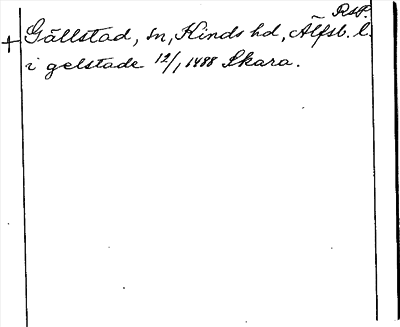 RsP.
+ Gällstad, sn, Kinds hd, Älfsb. l.
i gelstade 12/1 1488 Skara.